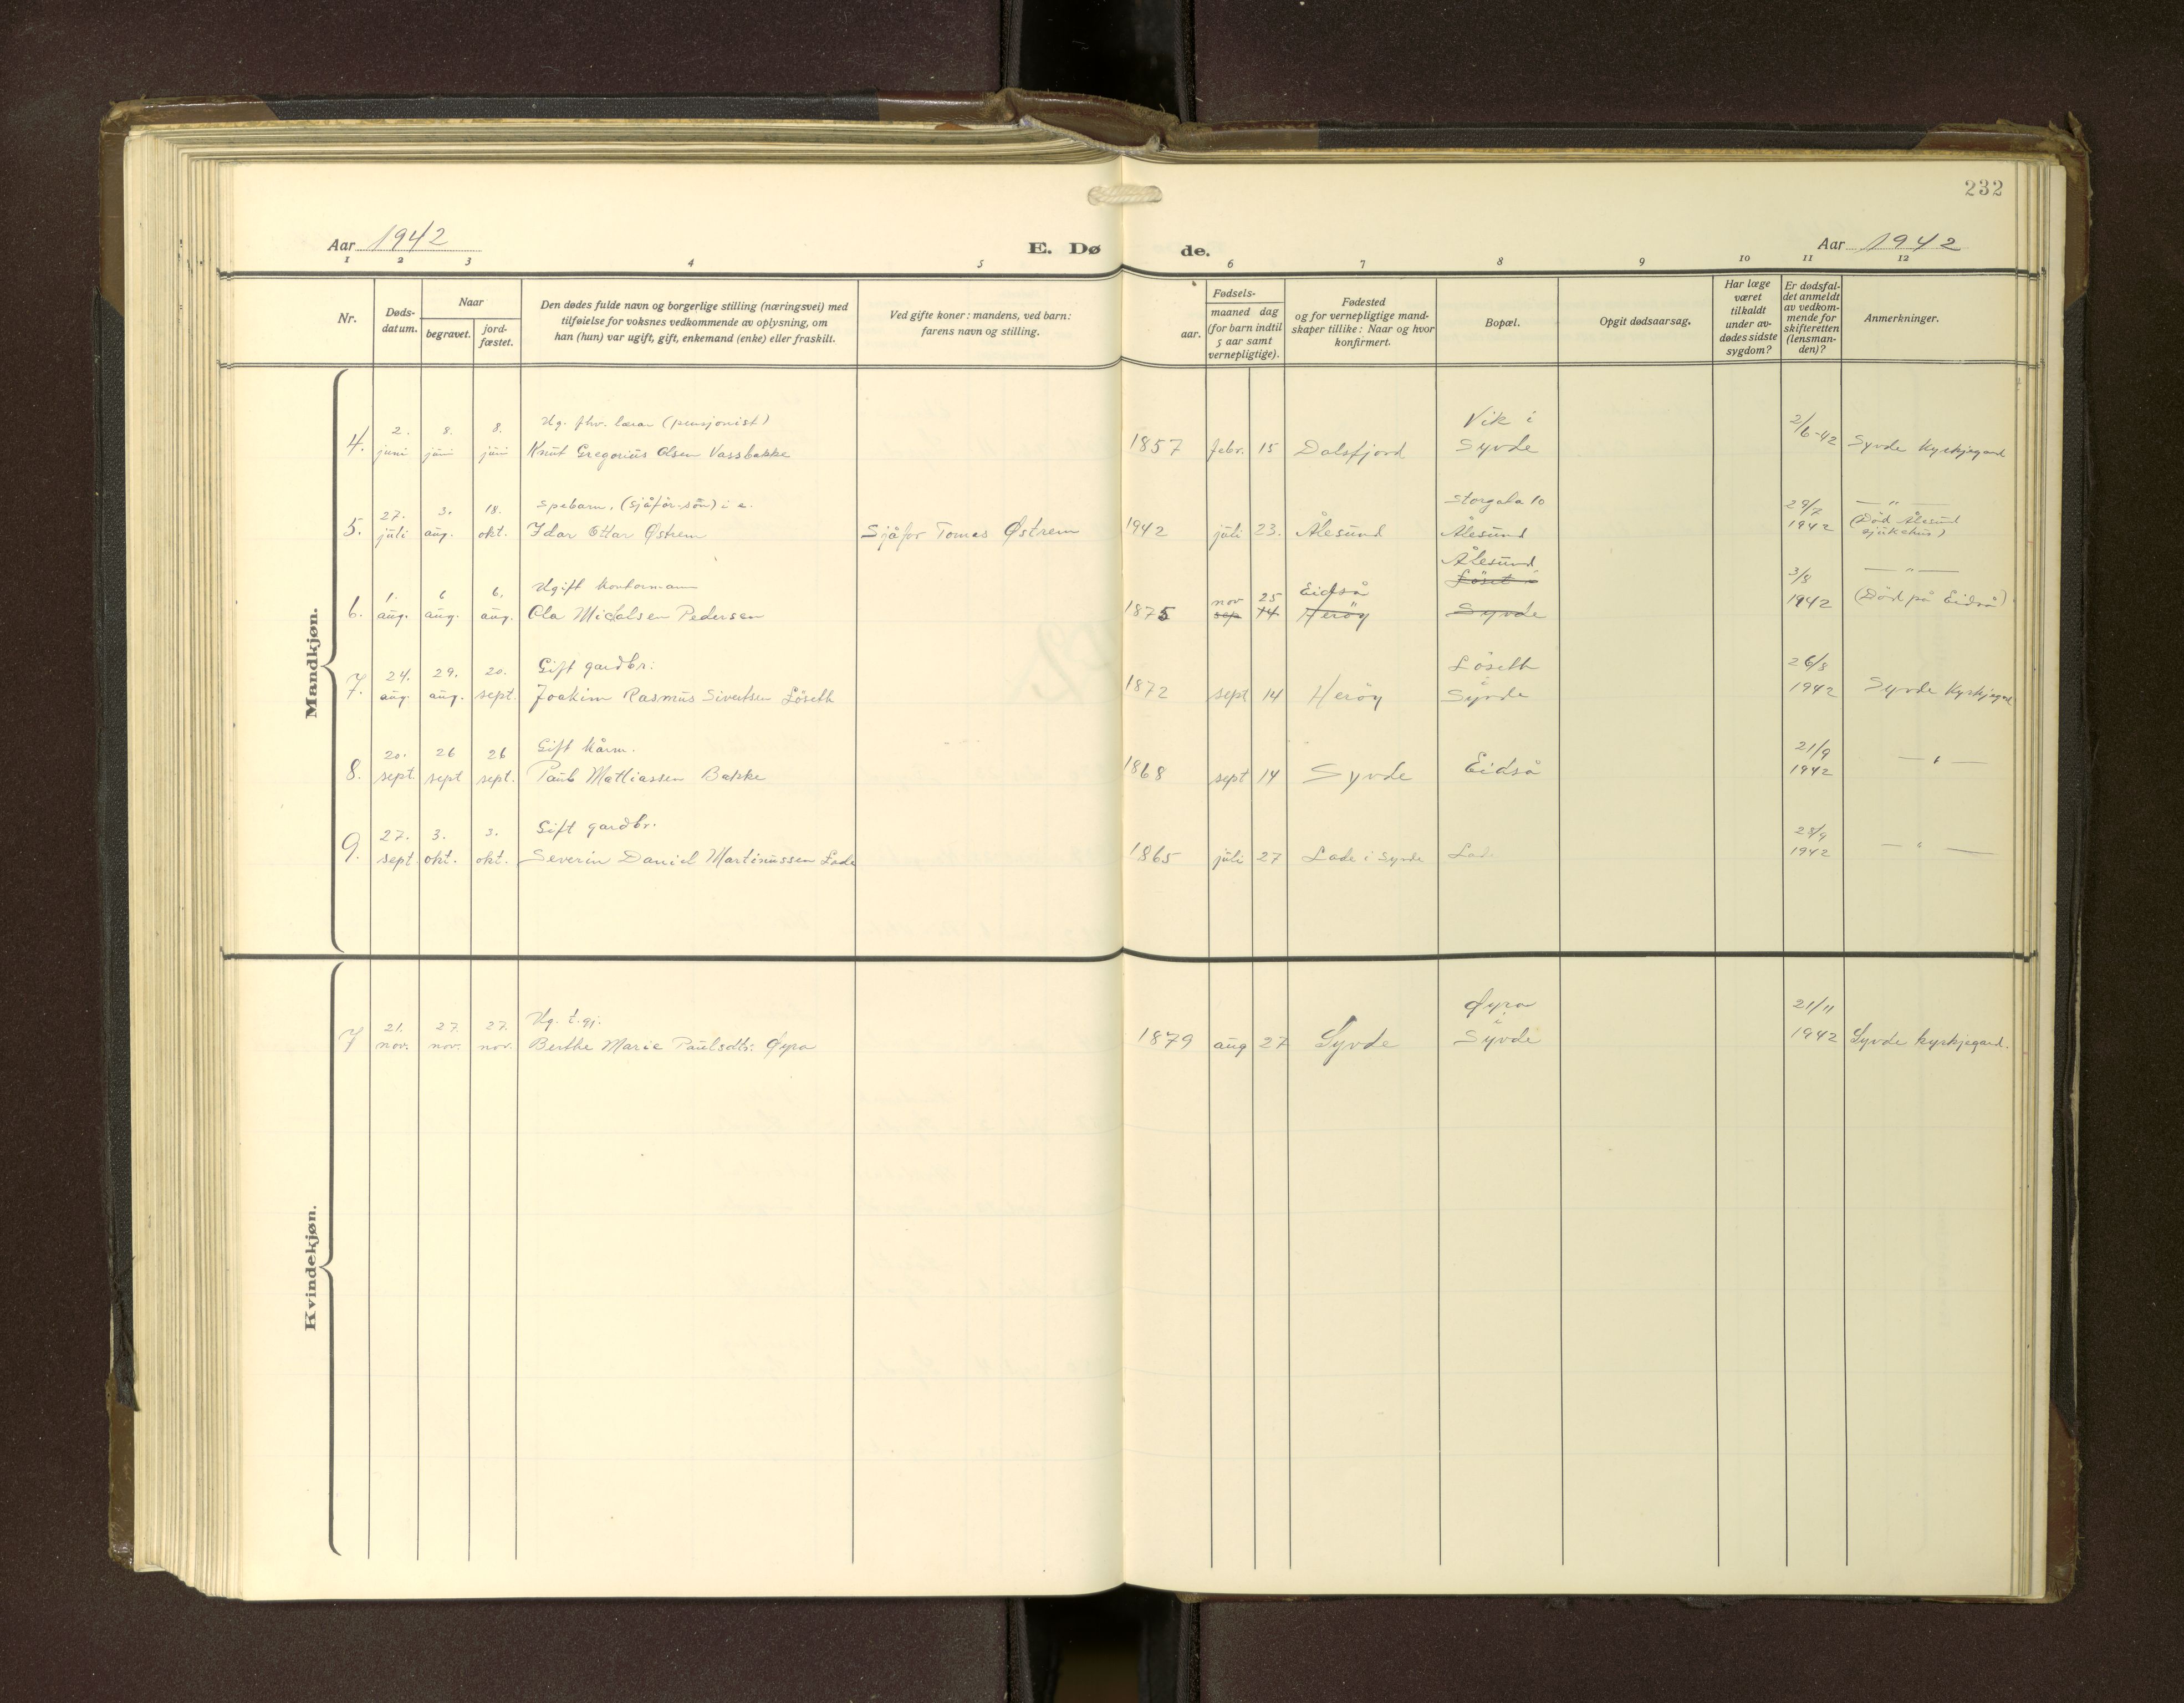 232
Aar 1942
E. Døde.
Aar 1942
1 2 3 4 5 6 7 8 9 10 11 12
Nr.
Døds-
datum.
Naar
begravet.
jord-
fæstet.
Den dødes fulde navn og borgerlige stilling (næringsvei) med
tilføielse for voksnes vedkommende av oplysning, om
han (hun) var ugift, gift, enkemand (enke) eller fraskilt.
Ved gifte koner: mandens, ved barn:
farens navn og stilling.
Fødsels-
aar.
maaned dag
(for barn indtil
5 aar samt
vernepligtige).
Fødested
og for vernepligtige mand-
skaper tillike: Naar og hvor
konfirmert.
Bopæl.
Opgit dødsaarsag.
Har læge
været
tilkaldt
under av-
dødes sidste
sygdom?
Er dødsfal-
det anmeldt
av vedkom-
mende for
skifteretten
(lensman-
den)?
Anmerkninger.
Mandkjøn.
2. 8. 8. Ug. fhv. lærar (pensjonist) Vik i
4. juni juni juni Knut Gregorius Olsen Vassbakke 1857 febr. 15 Dalsfjord Syvde 2/6-42 Syvde Kyrkjegard
27. 3. 18. Spebarn, (sjåfør-søn) i e. Storgata 10 29/7 — " —
5. juli aug. okt. Idar Ottar Østrem Sjåfør Tomas Østrem 1942 juli 23. Ålesund Ålesund 1942 (Död Ålesund
sjukehus)
1. 6 6. Ugift kontormann nov 25 Eidså Ålesund Löset i 3/8 — " —
6. aug. aug. aug. Ola Micalsen Pedersen 1875 sep 14 Heröy Syvde 1942 (Död på Eidså)
24. 29. 20. Gift gardbr. Löseth i 26/8
7. aug. aug. sept. Joakim Rasmus Sivertsen Löseth 1872 sept 14 Heröy Syvde 1942 Syvde Kyrkjegard
20. 26 26 Gift kårm. 21/9
8. sept. sept sept. Paul Mathiassen Bakke 1868 sept 14 Syvde Eidså 1942 — " —
27. 3. 3. Gift gardbr.
9. sept. okt. okt. Severin Daniel Martinussen Lade 1865 juli 27 Lade i Syvde Lad 1942 — " —
Kvindekjøn.
21. 27. 27. Ug. t.gj. Øyra i 21/11
7 nov. nov. nov. Berthe Marie Paulsdtr. Øyra 1879 aug 27 Syvde Syvde 1942 Syvde kyrkjegard.